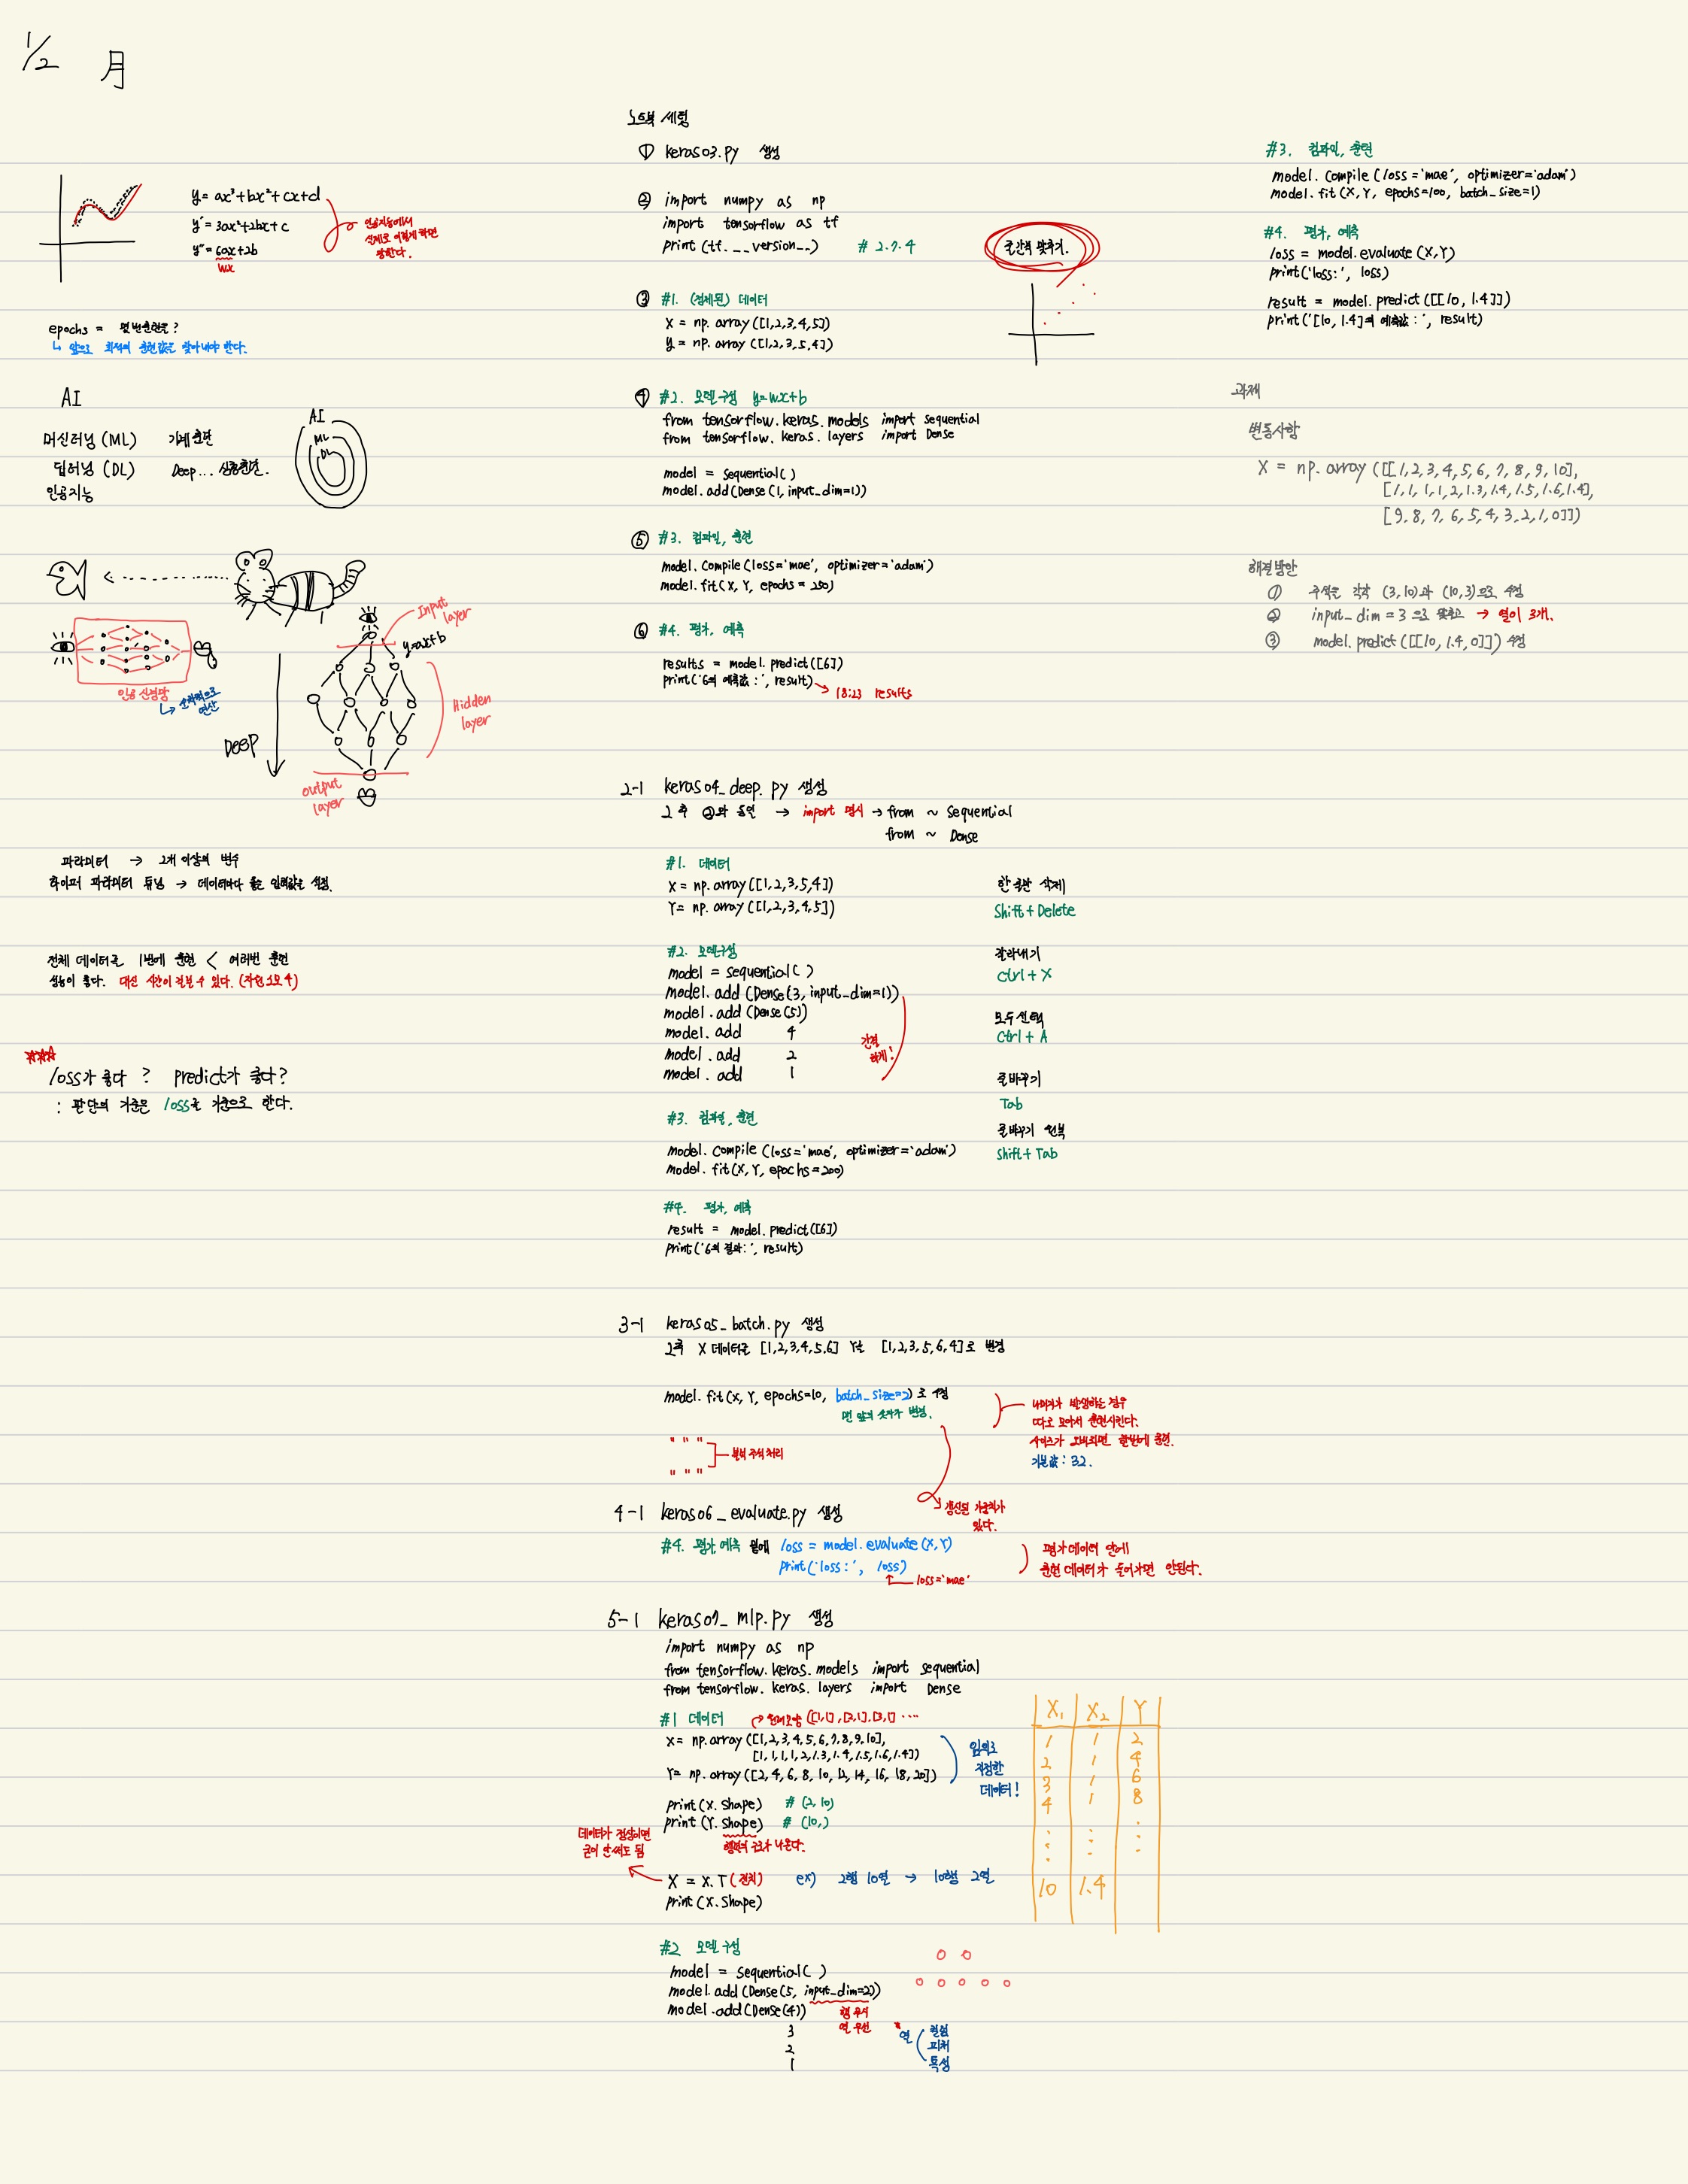 1/2 月
y = ax³+bx²+cx+d
y' = 3ax²+2bx+c
y'' = 6ax+2b
wx
인공지능에서
실제로 이렇게 하면
망한다.
epochs = 몇 번 훈련?
↳ 앞으로 최적의 훈련값을 찾아내야 한다.
AI
머신러닝 (ML) 기계 훈련
딥러닝 (DL) Deep...
인공지능
AI
ML
DL
인공 신경망
Input
layer
y=ax+b
Hidden
layer
DEEP
output
layer
파라미터 → 2개 이상의 변수
하이퍼 파라미터 튜닝 → 데이터마다 좋은 입력값을 설정.
전체 데이터를 1번에 훈련 < 여러번 훈련
성능이 좋다. 대신 시간이 걸릴 수 있다. (자원 소모 ↑)
loss가 좋다 ? predict가 좋다?
: 판단의 기준은 loss를 기준으로 한다.
노트북 세팅
① keras03.py 생성
② import numpy as np
import tensorflow as tf
print (tf.__version__) # 2.7.4
줄간격 맞추기.
③ #1. (정제된) 데이터
X = np.array ([1,2,3,4,5])
y = np.array ([1,2,3,5,4])
④ #2. 모델 구성 y=wx+b
from tensorflow.keras.models import sequential
from tensorflow.keras.layers import Dense
model = Sequential( )
model.add(Dense (1, input_dim=1))
⑤ #3. 컴파일, 훈련
model.compile (loss='mae', optimizer='adam')
model.fit (X, Y, epochs = 250)
⑥ #4. 평가, 예측
results = model.predict([6])
print('6의 예측값 :', result)
18:23 results
2-1 keras04_deep.py 생성
→ import 명시 → from ~ Sequential
from ~ Dense
#1. 데이터
X = np.array ([1,2,3,5,4])
Y = np.array ([1,2,3,4,5])
#2. 모델구성
model = sequential( )
model.add (Dense(3, input_dim=1))
model.add (Dense(5))
model.add 4
model.add 2
model.add 1
간결
하게!
한 줄만 삭제
Shift + Delete
잘라내기
Ctrl + X
모두 선택
Ctrl + A
줄바꾸기
Tab
줄바꾸기 번복
Shift + Tab
#3. 컴파일, 훈련
model.compile (loss='mae', optimizer='adam')
model.fit (X, Y, epochs=200)
#4. 평가, 예측
result = model.predict([6])
print('6의 결과:', result)
3-1 keras05_batch.py 생성
X 데이터를 [1,2,3,4,5,6] Y는 [1,2,3,5,6,4]로 변경
model.fit (X, Y, epochs=10, batch_size=2)로 수정
맨 앞의 숫자가 변경.
나머지가 발생하는 경우
따로 모아서 훈련시킨다.
사이즈가 오버되면 한번에 훈련.
기본값 : 32.
" " "
" " "
블럭 주석 처리
갱신된 가중치가
있다.
4-1 keras06_evaluate.py 생성
#4. 평가, 예측 밑에 loss = model.evaluate (X,Y)
print('loss:', loss)
loss='mae'
평가 데이터 안에
훈련 데이터가 들어가면 안된다.
5-1 keras07_mlp.py 생성
import numpy as np
from tensorflow.keras.models import sequential
from tensorflow.keras.layers import Dense
#1 데이터 원래모양 ([1,1], [2,1], [3,1] ....
X = np.array ([[1,2,3,4,5,6,7,8,9,10],
[1,1,1,1,2,1.3,1.4,1.5,1.6,1.4]])
Y = np.array ([2,4,6,8,10,12,14,16,18,20])
임의로
지정한
데이터!
print (X.shape) # (2,10)
print (Y.shape) # (10,)
행렬의 구조가 나온다.
데이터가 정상이면
굳이 안써도 됨
X = X.T (전치) ex) 2행 10열 → 10행 2열
print (X.shape)
X₁ X₂ Y
1 1 2
2 1 4
3 1 6
4 1 8
10 1.4
#2 모델 구성
model = Sequential( )
model.add (Dense(5, input_dim=2))
model.add (Dense(4))
3
2
1
행 무시
열 우선
열
컬럼
피처
특성
#3. 컴파일, 훈련
model.compile (loss='mae', optimizer='adam')
model.fit (X, Y, epochs=100, batch_size=1)
#4. 평가, 예측
loss = model.evaluate (X,Y)
print('loss:', loss)
result = model.predict ([[10, 1.4]])
print('[10, 1.4]의 예측값 :', result)
과제
변동사항
X = np.array ([[1,2,3,4,5,6,7,8,9,10],
[1,1,1,1,2,1.3,1.4,1.5,1.6,1.4],
[9,8,7,6,5,4,3,2,1,0]])
해결방안
① 주석은 각각 (3,10)과 (10,3)으로 수정
② input_dim = 3 으로 맞추고 → 열이 3개.
③ model.predict ([[10, 1.4, 0]]) 수정